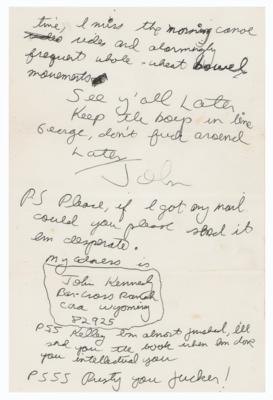 time, I miss the morning canoe
rides and alarmingly
frequent whole-wheat bowel
movements
See y'all Later
Keep the boys in line
George, don't fuck around
Later
John
PS Please, if I got any mail
could you please send it
Im desperate.
my adress is
John Kennedy
Bar-Cross Ranch
Cora Wyoming
82925
PSS Kelley Im almost finished, Ill
send you the book when Im done
you intellectual you
PSSS Rusty you fucker!